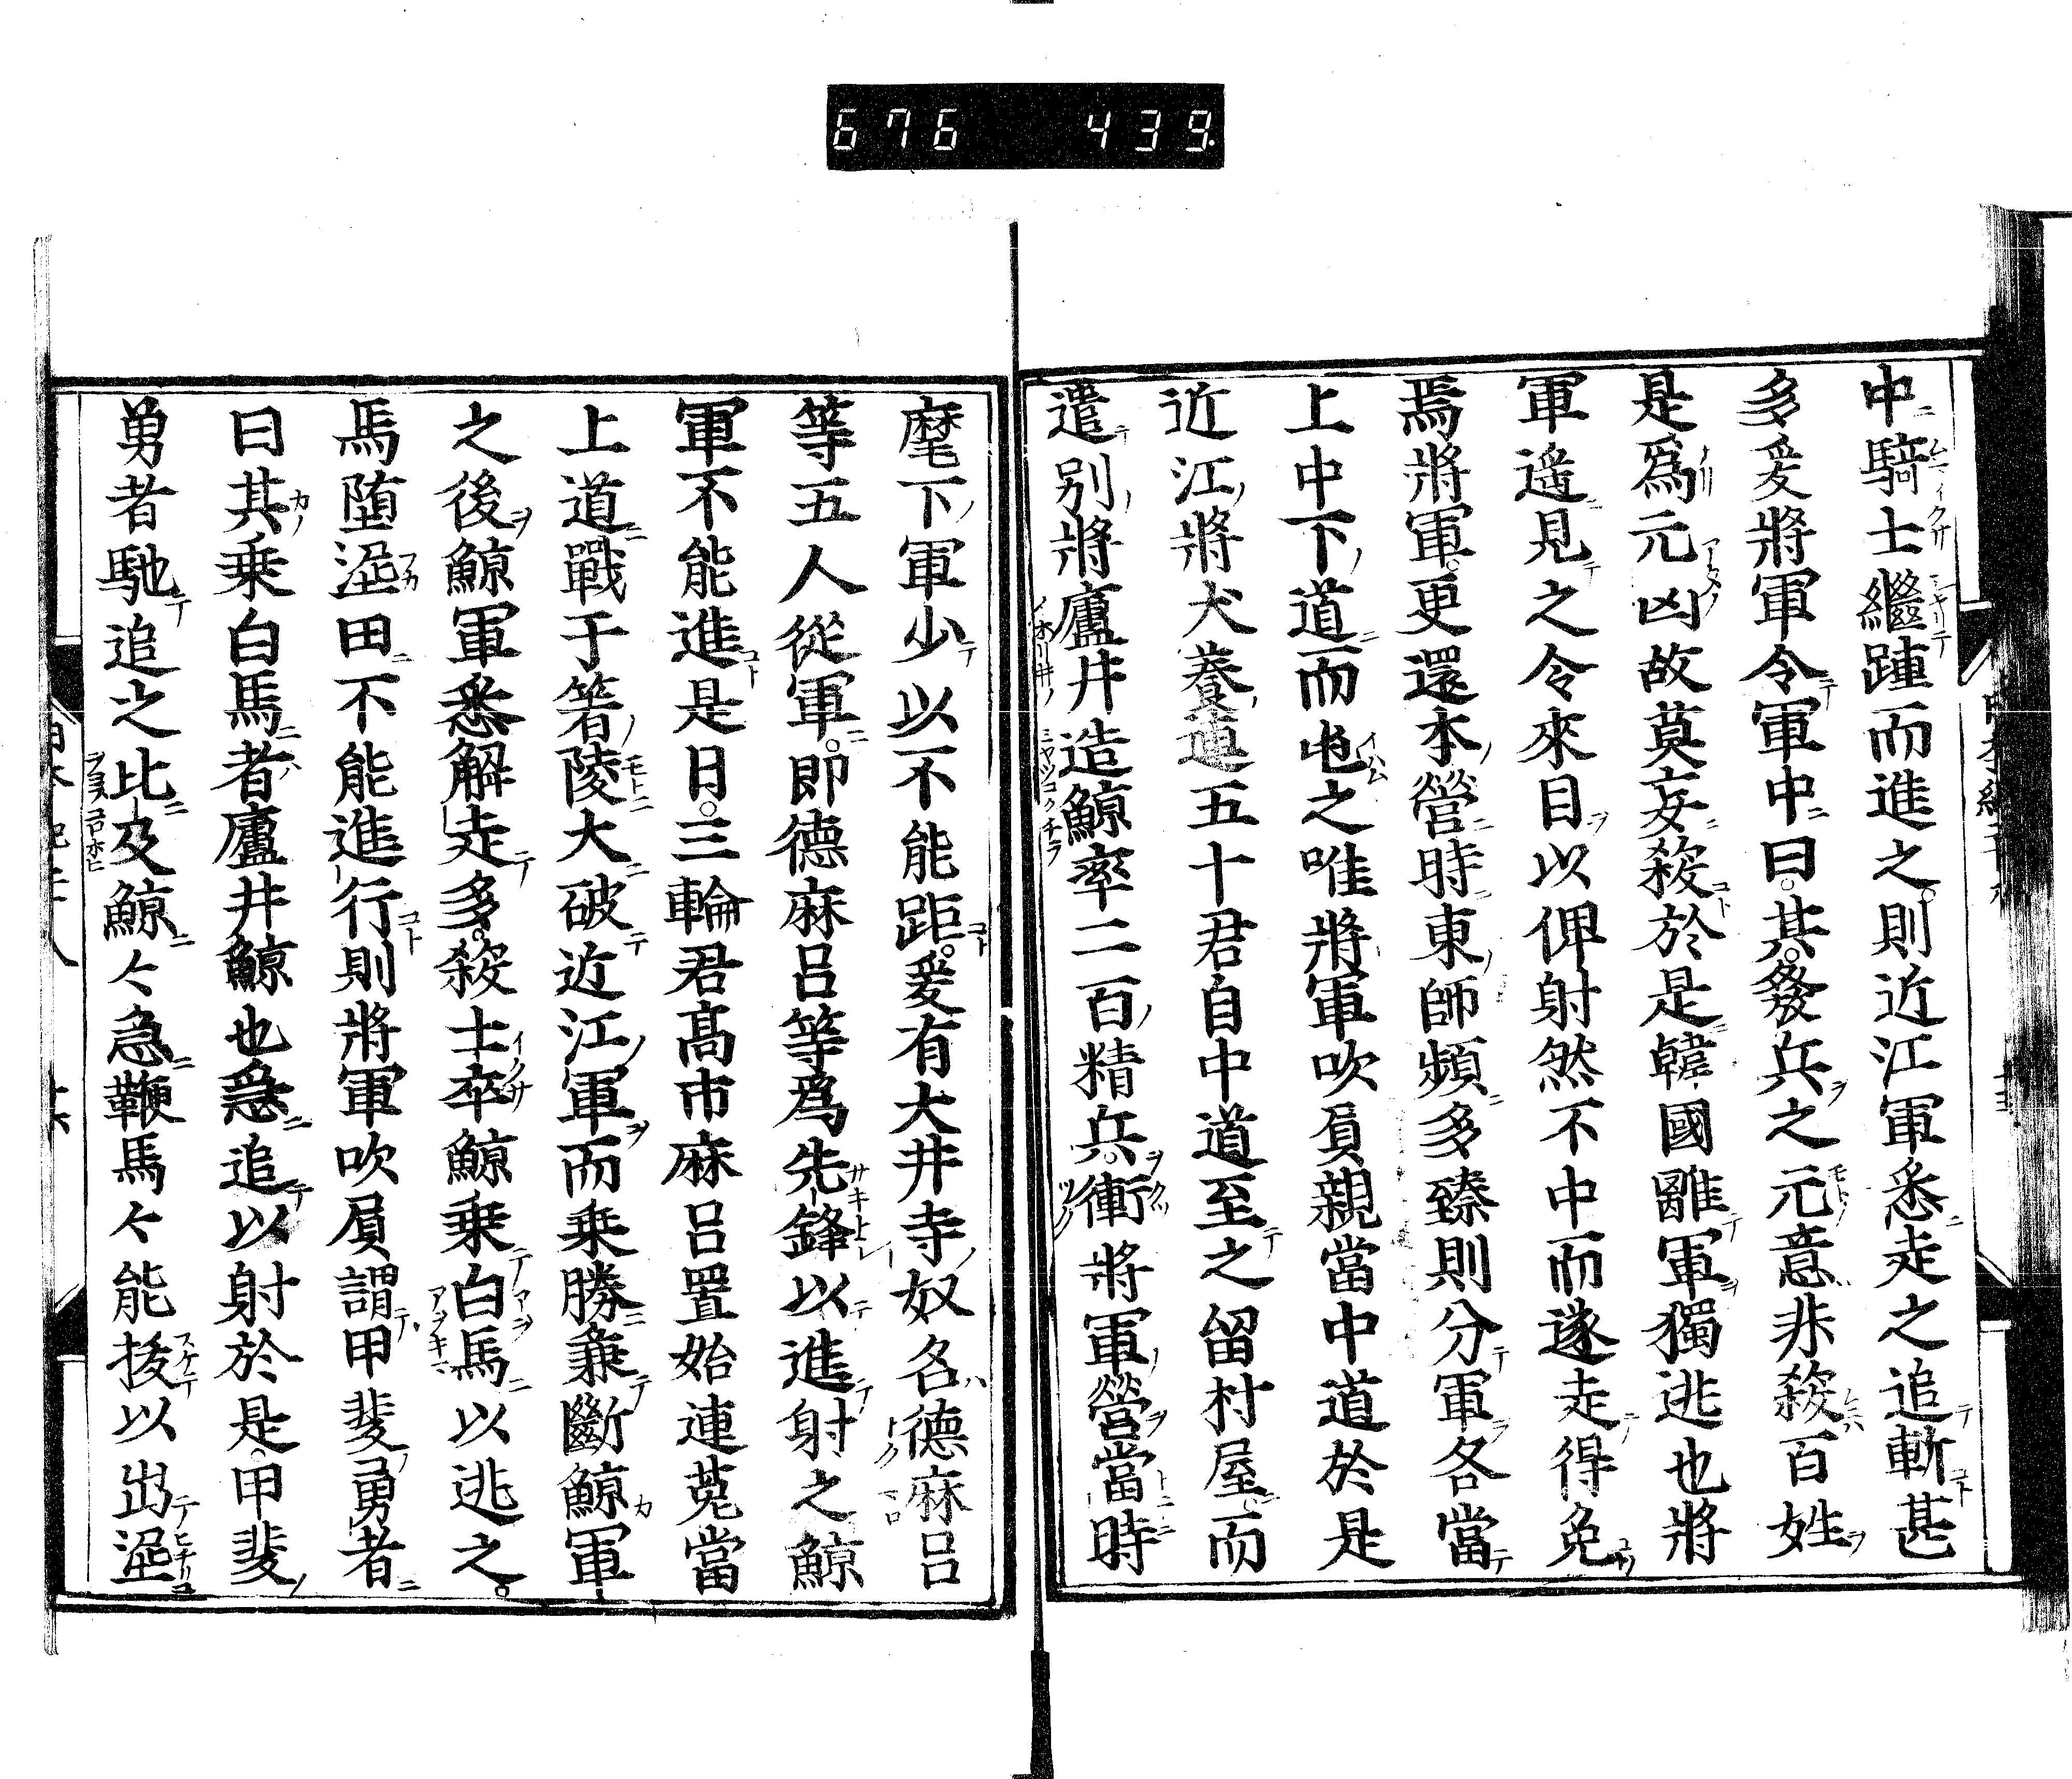 676 439
中騎士繼踵而進之則近江軍悉走之追斬甚
多爰將軍令軍中曰其發兵之元意非殺百姓
是爲元凶故莫妄殺於是韓國離軍獨逃也將
軍遥見之令來目以俾射然不中而遂走得免
焉將軍更還本營時東師頻多臻則分軍各當
上中下道而屯之唯將軍吹負親當中道於是
近江將犬養連五十君自中道至之留村屋而
遣別將廬井造鯨率二百精兵衝將軍營當時
麾下軍少以不能距爰有大井寺奴名德麻呂
等五人從軍即德麻呂等爲先鋒以進射之鯨
軍不能進是日三輪君高市麻呂置始連菟當
上道戰于箸陵大破近江軍而乗勝兼斷鯨軍
之後鯨軍悉解走多殺士卒鯨乗白馬以逃之
馬墮埿田不能進行則將軍吹負謂甲斐勇者
曰其乗白馬者廬井鯨也急追以射於是甲斐
勇者馳追之比及鯨々急鞭馬々能拔以出埿